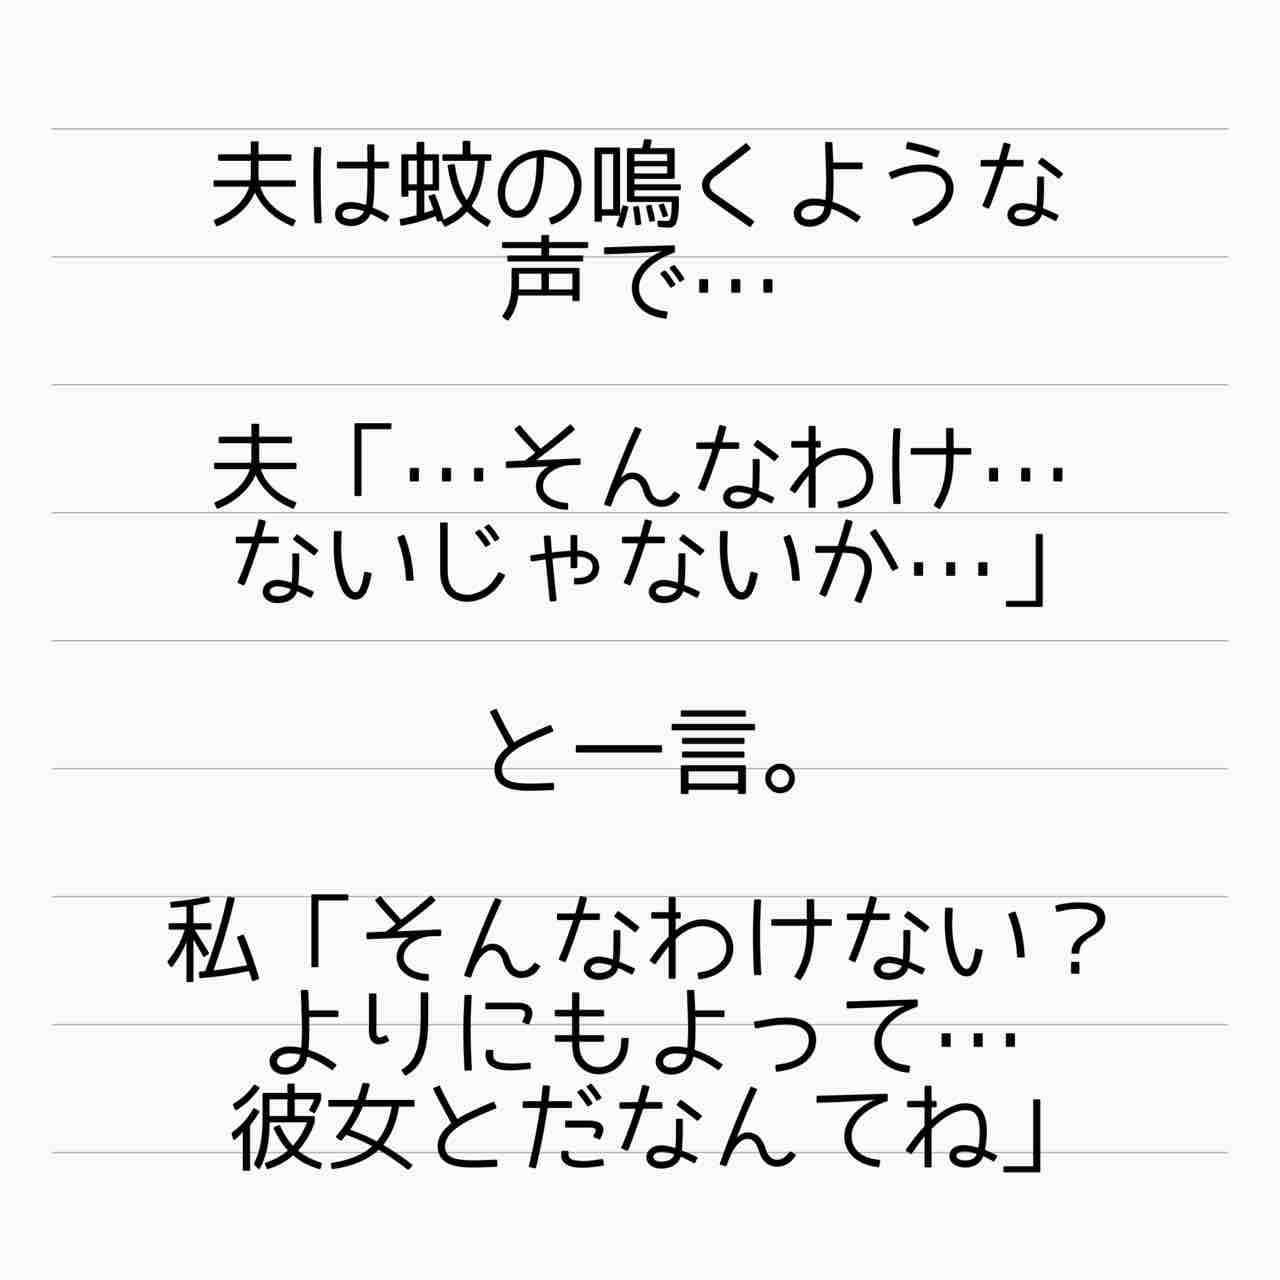 夫は蚊の鳴くような
声で…
夫「…そんなわけ…
ないじゃないか…」
と一言。
私「そんなわけない？
よりにもよって…
彼女とだなんてね」